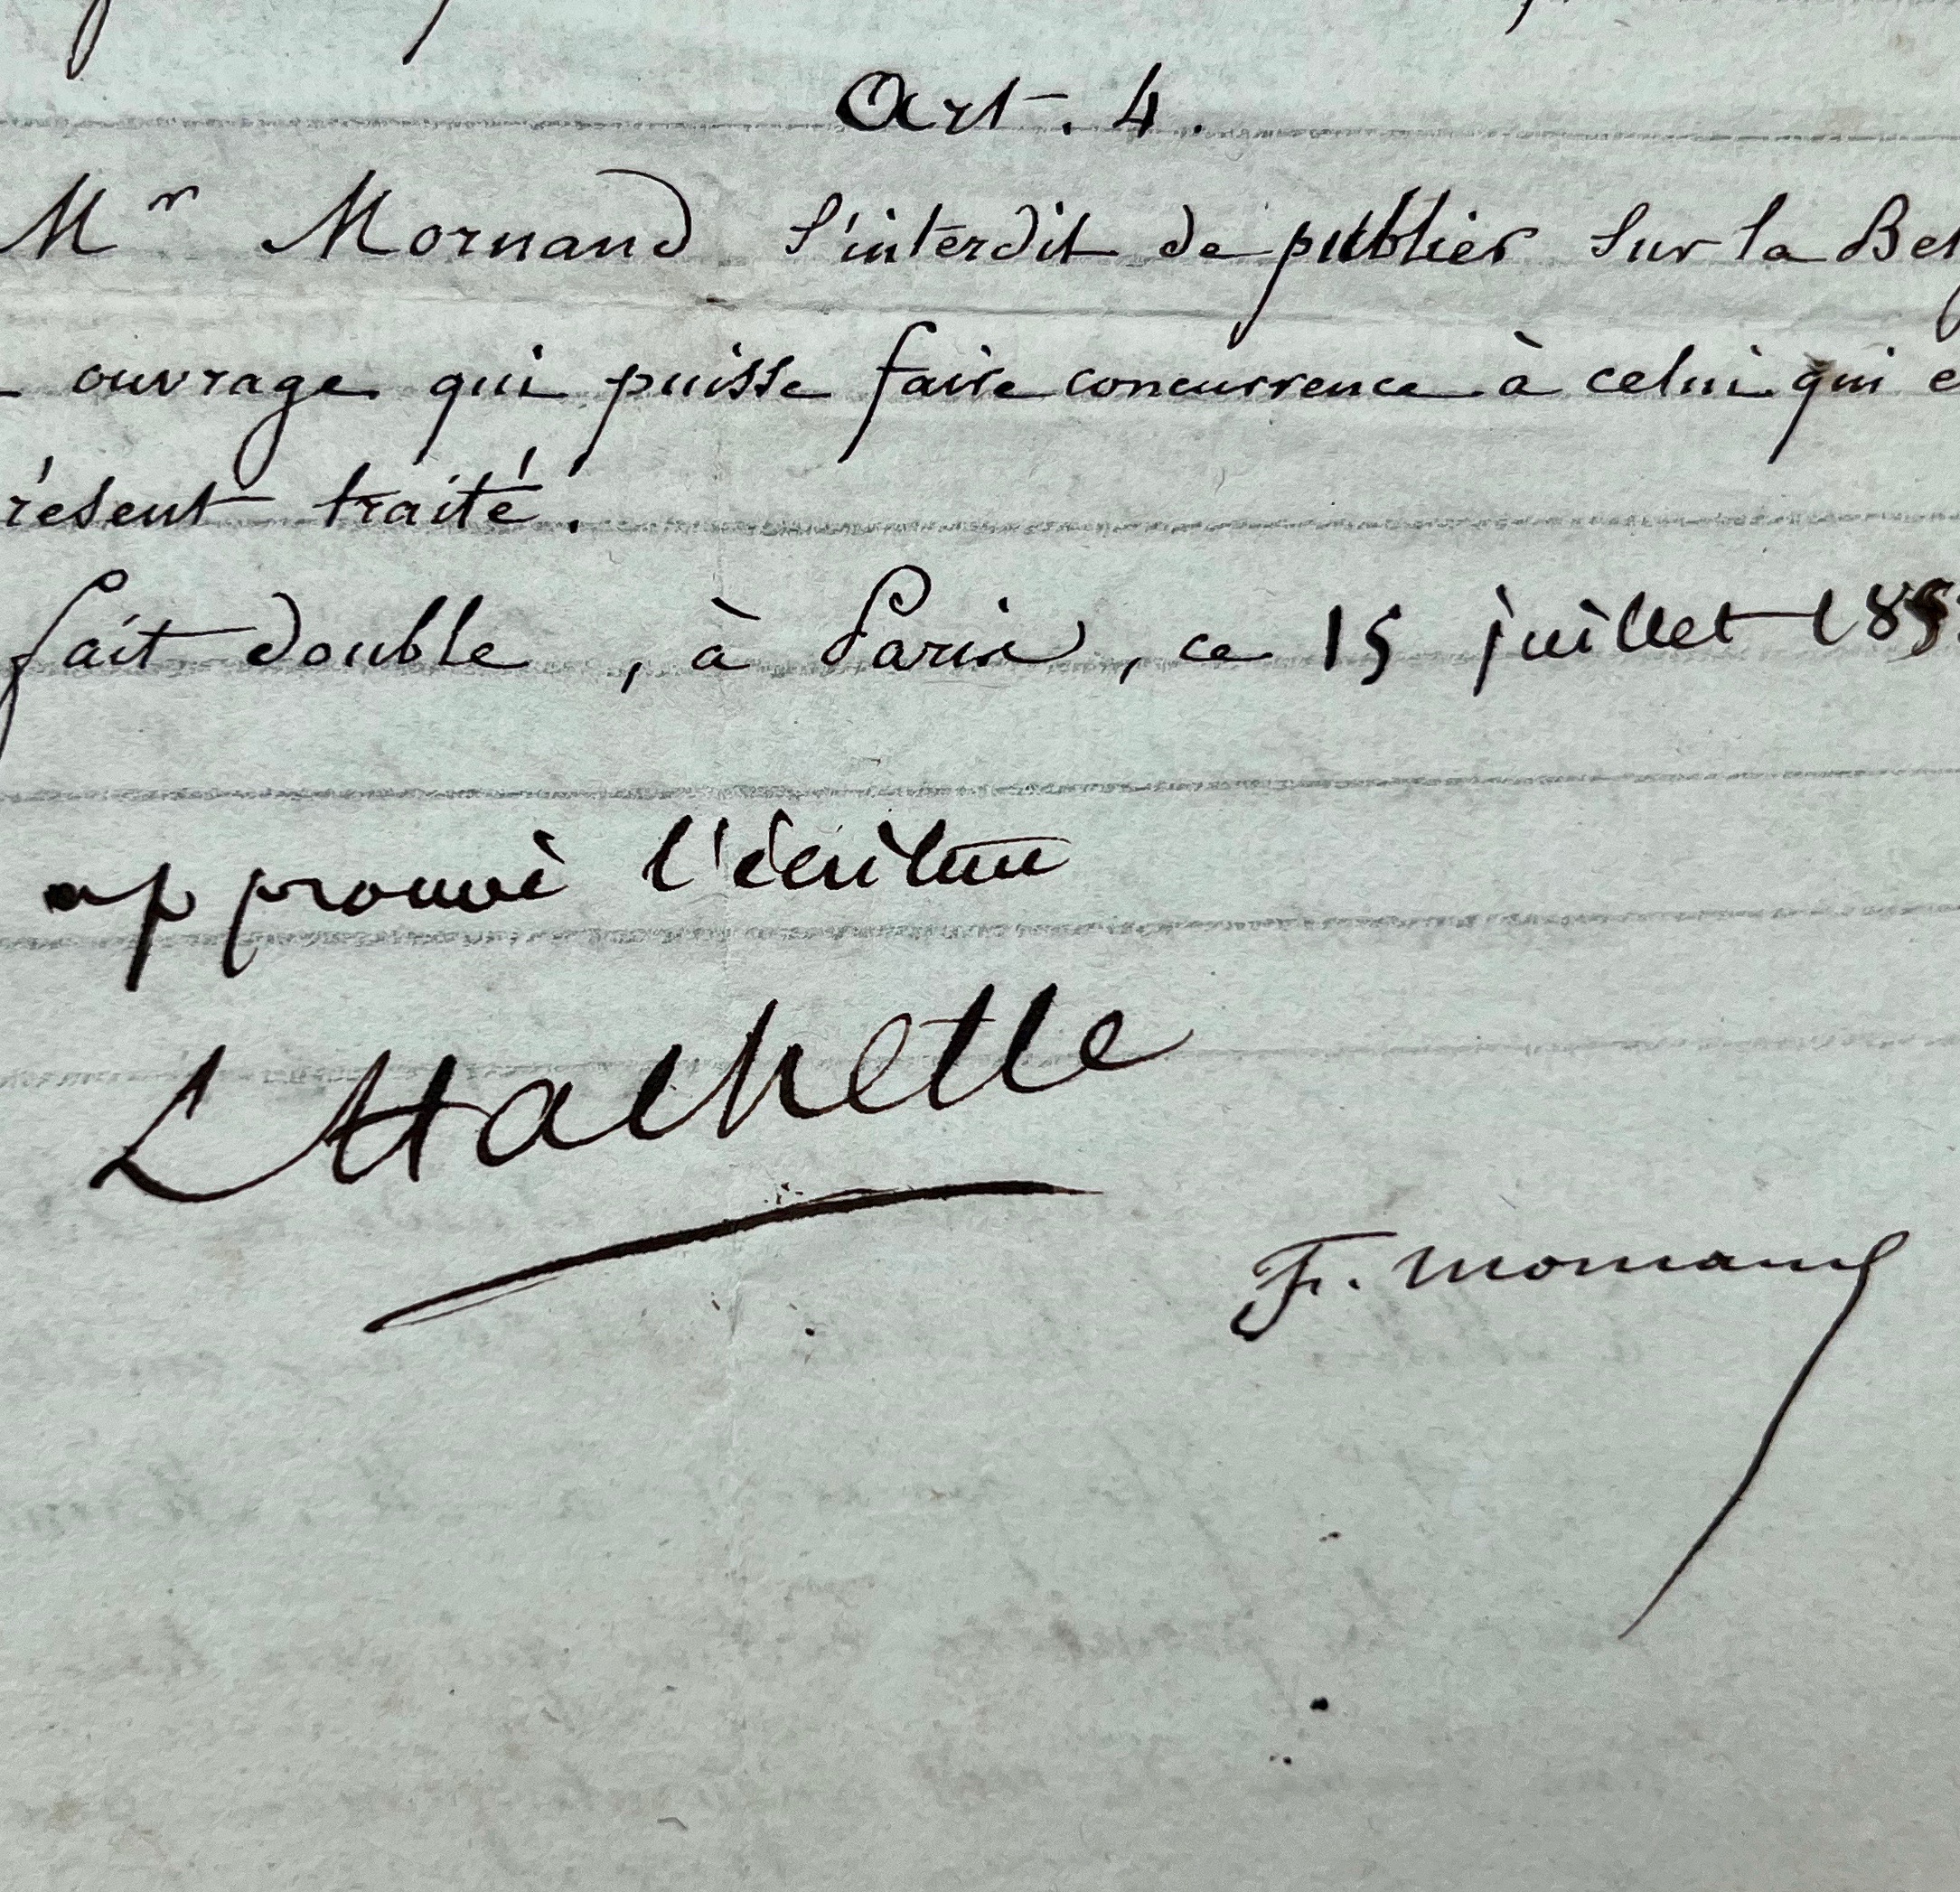 Art. 4.
Mr Mornand s'interdit de publier sur la Bel
ouvrage qui puisse faire concurrence à celui qui e
résent traité.
fait double, à Paris, ce 15 juillet 185
approuvé l'écriture
L Hachette
F. Mornand